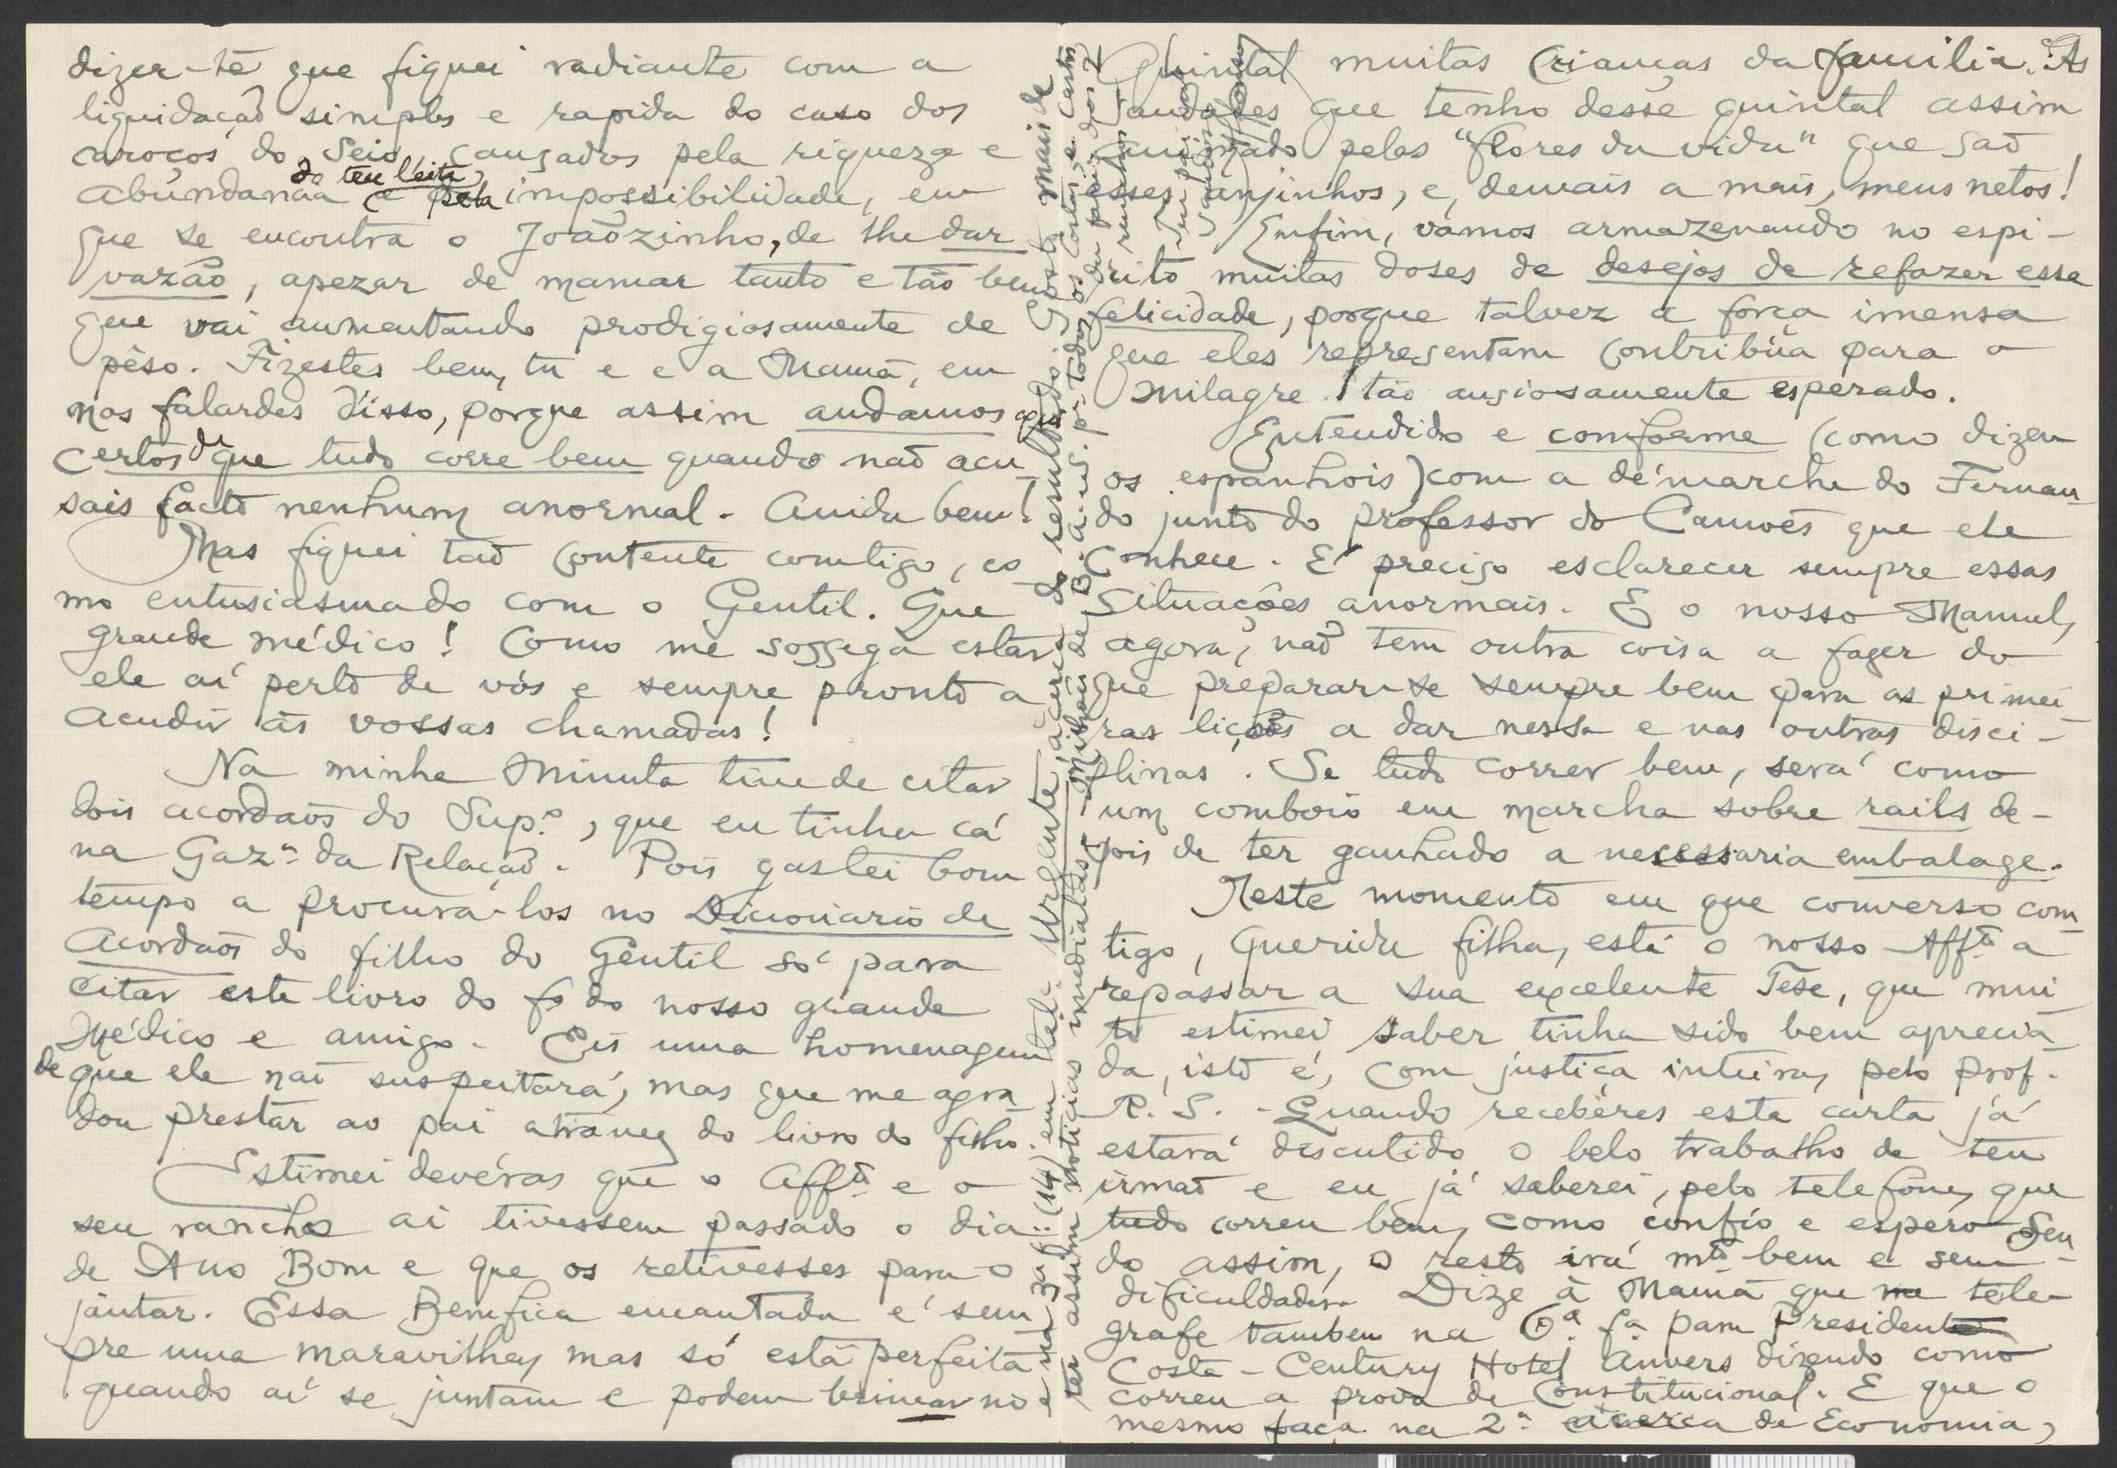 dizer-te que fiquei radiante com a
liquidação simples e rapida do caso dos
caroços do Seio, causados pela riqueza e
abundancia do teu leite, e pela impossibilidade, em
que se encontra o Joãozinho, de lhe dar
vazão, apezar de mamar tanto e tão bem
que vai aumentando prodigiosamente de
pêso. Fizestes bem, tu e e a Mamã, em
nos falardes disso, porque assim andamos
certos de que tudo corre bem quando não acu-
sais facto nenhum anormal. Ainda bem!
Mas fiquei tão contente comtigo, co
mo entusiasmado com o Gentil. Que
grande médico! Como me sossega estar
ele aí perto de vós e sempre pronto a
acudir ás vossas chamadas!
Na minha Minuta tive de citar
dois acordãos do Sup.º, que eu tinha cá
na Gaz.ª da Relação. Pois gastei bom
tempo a procurá-los no Dicionario de
Acordãos do filho do Gentil só para
citar este livro do fº do nosso grande
Médico e amigo. Eis uma homenagem
de que ele não suspeitará, mas que me agra
dou prestar ao pai atravez do livro do filho.
Estimei devéras que o Affº e o
seu rancho aí tivessem passado o dia
de Ano Bom e que os retivesses para o
jantar. Essa Bemfica encantada é sem
pre uma maravilha, mas só está perfeita
quando aí se juntam e podem brincar no
Quintal muitas crianças da familia. As
saudades que tenho desse quintal assim
animado pelas "flores da vida" que são
esses anjinhos, e, demais a mais, meus netos!
Emfim, vamos armazenando no espi-
rito muitas doses de desejos de refazer essa
felicidade, porque talvez a força imensa
que eles representam contribúa para o
milagre tão ansiosamente esperado.
Entendido e conforme (como dizem
os espanhois) com a démarche do Fernan-
do junto do professor do Camões que ele
conhece. É preciso esclarecer sempre essas
situações anormais. E o nosso Manuel,
agora, não tem outra coisa a fazer do
que preparar-se sempre bem para as primei-
ras lições a dar nessa e nas outras disci-
plinas. Se tudo correr bem, será como
um comboio em marcha sobre rails de-
pois de ter ganhado a necessaria embalage.
Neste momento em que converso com
tigo, Querida filha, está o nosso Affº a
repassar a sua excelente Tese, que mui
to estimei saber tinha sido bem aprecia-
da, isto é, com justiça inteira, pelo prof.
R. S. - Quando receberes esta carta já
estará discutido o belo trabalho de teu
irmão e eu já saberei, pelo telefone, que
tudo correu bem, como confio e espero. Sen
do assim, o resto irá mtº bem e sem
dificuldades. Dize à Mamã que tele-
grafe tambem na 6ª fª para President
Costa - Century Hotel Anvers dizendo como
correu a prova de Constitucional. E que o
mesmo faça na 2ª acerca de Economia,
e na 3ª f. (14) em tel. Urgente, acerca do resultado. Gosto mais de
ter assim noticias imediatas.